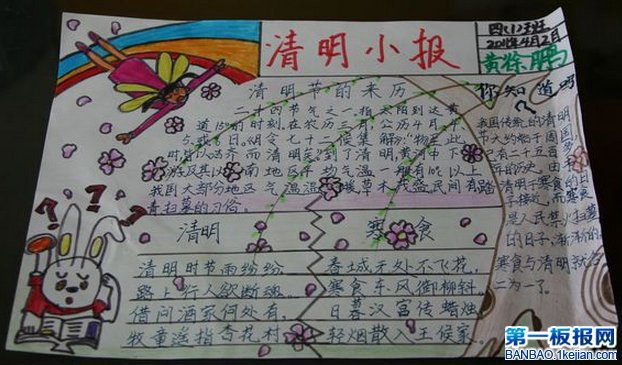 清明小报
四(1)班
2014年4月2日
黄徐鹏
清明节的来历
二十四节气之一指太阳到达黄
道15°的时刻在农历三月,公历4月4
与或6日。
时
而清明矣
到了清明黄河中下
游及其以南地区平均气温一般有
以上
我国大部分地区气温温暖草木茂盛民间有踏
青扫墓的习俗。
你知道吗
我国传统的清明
节大约始于周
二千五百多
年的历史。由于
清明于寒食的日
子接近,而寒食
是人民禁火扫墓
的日子,渐渐的
寒食与清明就
二为一了。
清明
清明时节雨纷纷
路上行人欲断魂。
借问酒家何处有,
牧童遥指杏花村。
寒食
春城无处不飞花,
寒食东风御柳斜。
日暮汉宫传蜡烛
轻烟散入王侯家。
第一板报网
BANBAO.1kejian.com